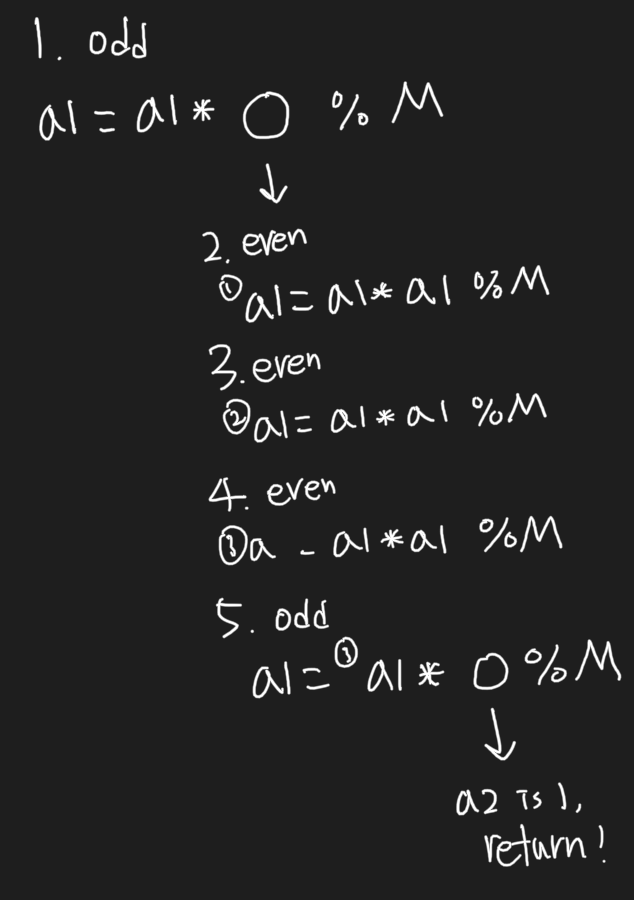 1. odd
a1 = a1 * ○ % M
↓
2. even
① a1 = a1 * a1 % M
3. even
② a1 = a1 * a1 % M
4. even
③ a - a1 * a1 % M
5. odd
a1 = ③ a1 * ○ % M
↓
a2 is 1,
return!